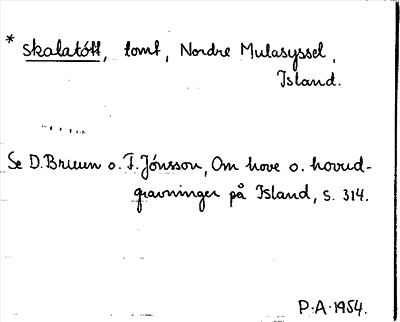 * Skalatótt, tomt, Nordre Mulasyssel,
Island.
Se D. Bruun o. F. Jónsson, Om hove o. hovud-
gravninger på Island, s. 314.
P.A. 1954.